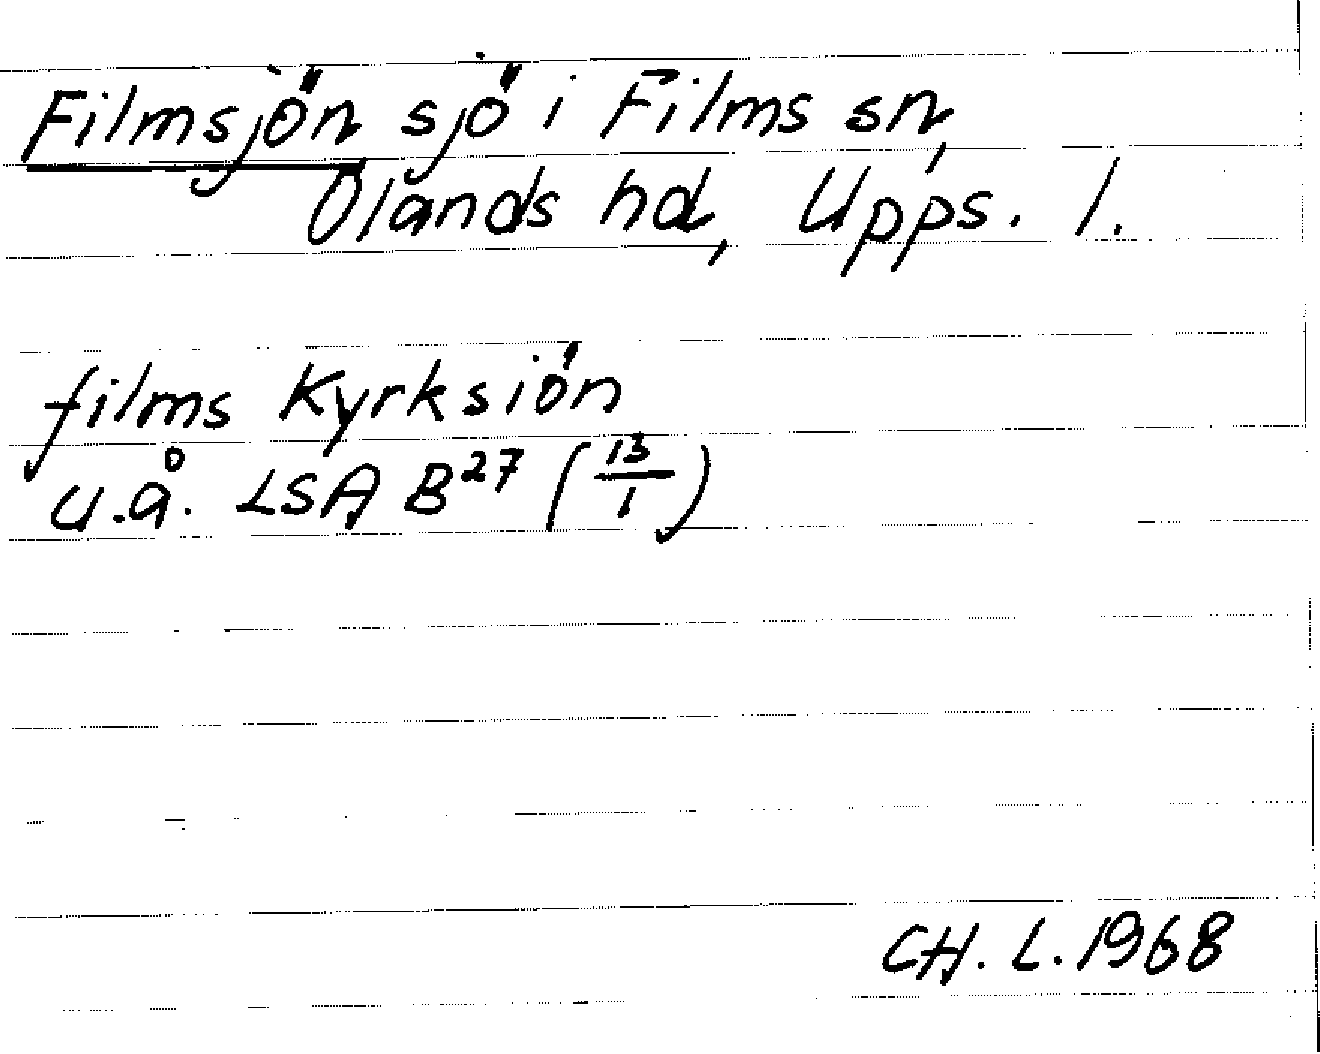 Filmsjön sjö i Films sn,
Ölands hd, Upps. l.
films Kyrksiön
u.å. LSA B²⁷ (13/1)
CH. L. 1968